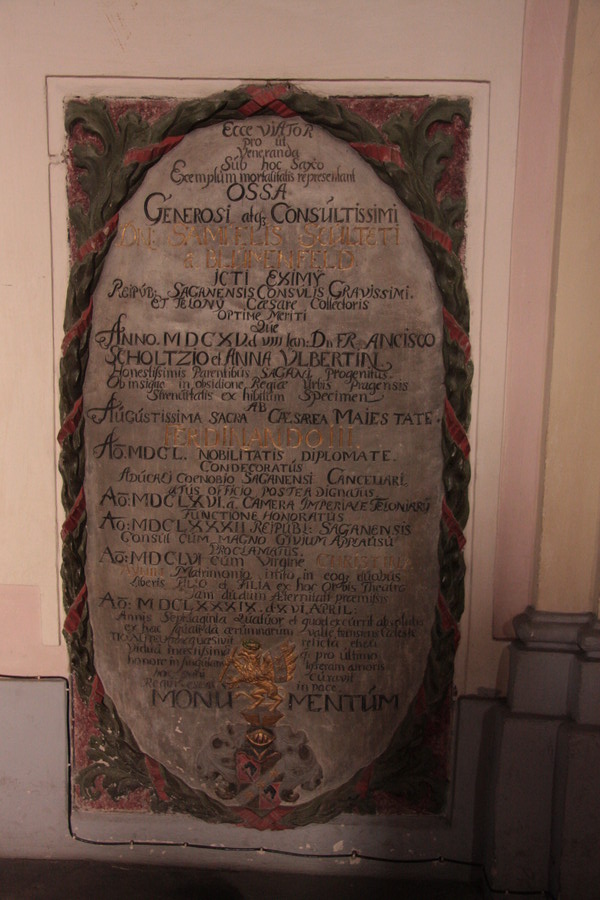 Ecce VIATOR
pro ut
Veneranda
Sub hoc Saxo
Exemplum mortalitatis representant
OSSA
GENEROSI atq; CONSULTISSIMI
DN: SAMUELIS SCULTETI
a BLUMENFELD
ICTI EXIMY
REIPUB: SAGANENSIS CONSULIS GRAVISSIMI.
ET TELONY CÆSARE COLLECTORIS
OPTINE MERITI
Que
ANNO. MDCXV. d VIII Ian: Dn FRANCISCO
SCHOLTZIO et ANNA VLBERTIN,
Honestissimis Parentibus SAGANI Progenitus.
Ob insigne in obsidione Regiæ Urbis Pragensis
Strenuitatis exhibitum Specimen
AB
AUGUSTISSIMA SACRA CÆSAREA MAIESTATE.
FERDINANDO III
Ao: MDCL. NOBILITATIS DIPLOMATE.
CONDECORATUS
Ducali COENOBIO SAGANENSI CANCELLARI.
ATUS OFFICIO POSTEA DIGNATUS
Ao: MDCLXVI. a CAMERA IMPERIALE TELONIARY
FUNCTIONE HONORATUS
Ao: MDCLXXXII REIPUBL: SAGANENSIS
CONSUL CUM MAGNO CIVIUM APPLAUSU
PROCLAMATUS.
Ao: MDCLVI cum Virgine CHRISTINA
Matrimonio inito in eoq; duobus
liberis FILIO et FILIA ex hoc ORBIS Theatro
Iam dudum Æternitati præmissis
Ao: MDCLXXXIX. d XVI APRIL:
Annis Septuaginta Quatuor et quod excurrit absolutis
ex hac
relicta
Vidua moestissima qi pro ultimo
honore in amoris
hoc curavit
in pace.
MONUMENTUM